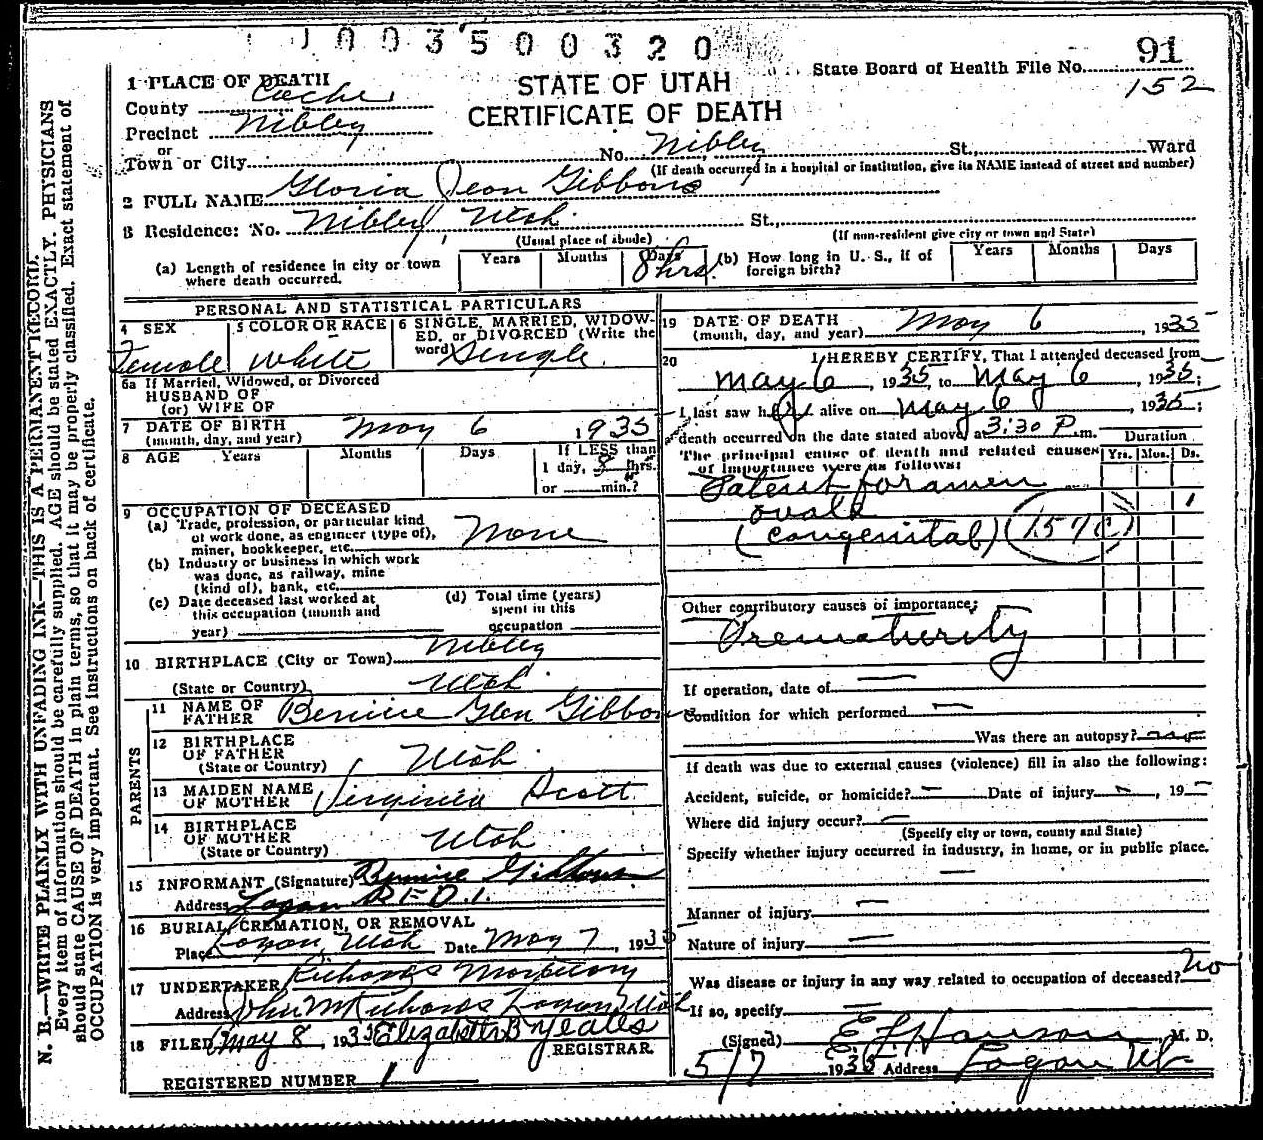 003500320
91
152
STATE OF UTAH
CERTIFICATE OF DEATH
State Board of Health File No.
1 PLACE OF DEATH
County Cache
Precinct Nibley
or
Town or City No. Nibley St., Ward
(If death occurred in a hospital or institution, give its NAME instead of street and number)
2 FULL NAME Gloria Jean Gibbons
3 Residence: No. Nibley, Utah. St.,
(Usual place of abode) (If non-resident give city or town and State)
(a) Length of residence in city or town where death occurred. Years Months Days 8 hrs. (b) How long in U. S., if of foreign birth? Years Months Days
PERSONAL AND STATISTICAL PARTICULARS
4 SEX Female
5 COLOR OR RACE White
6 SINGLE, MARRIED, WIDOWED, or DIVORCED (Write the word) Single
6a If Married, Widowed, or Divorced
HUSBAND OF
(or) WIFE OF
7 DATE OF BIRTH
(month, day, and year) May 6 1935
8 AGE Years Months Days If LESS than
1 day, 8 hrs.
or min.?
9 OCCUPATION OF DECEASED
(a) Trade, profession, or particular kind
of work done, as engineer (type of),
miner, bookkeeper, etc. None
(b) Industry or business in which work
was done, as railway, mine
(kind of), bank, etc.
(c) Date deceased last worked at
this occupation (month and
year)
(d) Total time (years)
spent in this
occupation
10 BIRTHPLACE (City or Town) Nibley
(State or Country) Utah.
PARENTS
11 NAME OF
FATHER Bernice Glen Gibbons
12 BIRTHPLACE
OF FATHER
(State or Country) Utah.
13 MAIDEN NAME
OF MOTHER Virginia Scott.
14 BIRTHPLACE
OF MOTHER
(State or Country) Utah
15 INFORMANT (Signature) Bernice Gibbons
Address Logan R.F.D. 1.
16 BURIAL, CREMATION, OR REMOVAL
Place Logan, Utah Date May 7, 1935
17 UNDERTAKER Richards Mortuary
Address John M Richards Logan Utah
18 FILED May 8, 1935 Elizabeth B Yeates
REGISTRAR.
REGISTERED NUMBER 1
19 DATE OF DEATH
(month, day, and year) May 6, 1935
20 I HEREBY CERTIFY, That I attended deceased from
May 6, 1935, to May 6, 1935;
I last saw her alive on May 6, 1935;
death occurred on the date stated above at 3:30 P.m.
The principal cause of death and related causes
of importance were as follows:
Duration
Yrs. Mos. Ds.
Patent foramen
ovale
(Congenital) 157C
Other contributory causes of importance:
Prematurity
If operation, date of —
Condition for which performed —
Was there an autopsy?
If death was due to external causes (violence) fill in also the following:
Accident, suicide, or homicide? — Date of injury —, 19 —
Where did injury occur? —
(Specify city or town, county and State)
Specify whether injury occurred in industry, in home, or in public place.
—
Manner of injury —
Nature of injury —
Was disease or injury in any way related to occupation of deceased? No
If so, specify —
(Signed) E L Hanson, M. D.
5/7 1935 Address Logan Ut
N. B.—WRITE PLAINLY WITH UNFADING INK—THIS IS A PERMANENT RECORD.
Every item of information should be carefully supplied. AGE should be stated EXACTLY. PHYSICIANS
should state CAUSE OF DEATH in plain terms, so that it may be properly classified. Exact statement of
OCCUPATION is very important. See instructions on back of certificate.